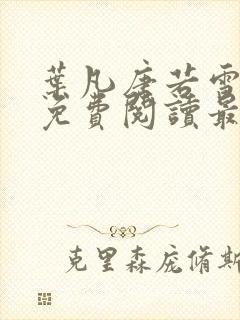 葉凡唐若雪
免費閱讀最
克里森庞脩斯